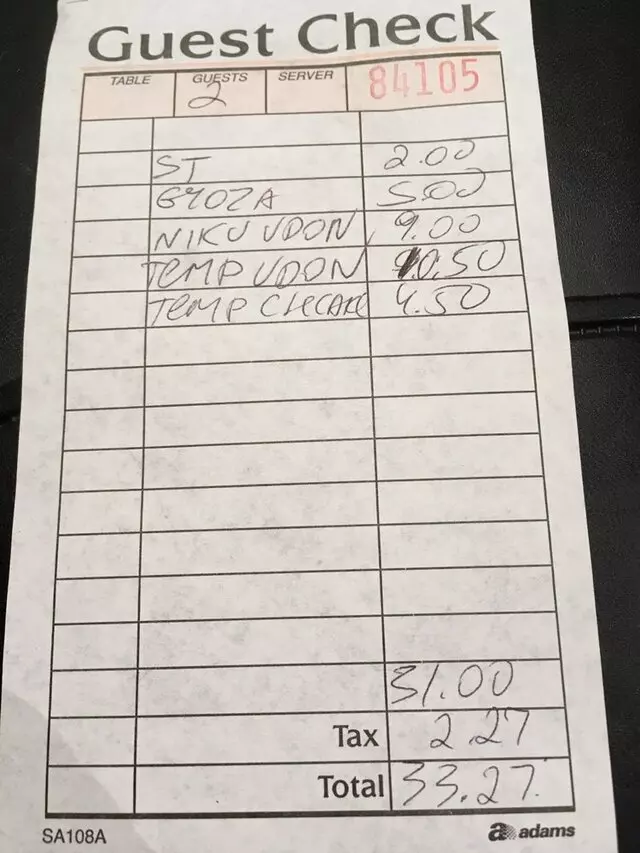 Guest Check
TABLE GUESTS SERVER 84105
2
ST 2.00
GYOZA 5.00
NIKU UDON 9.00
TEMP UDON 10.50
TEMP 4.50
31.00
Tax 2.27
Total 33.27
SA108A adams